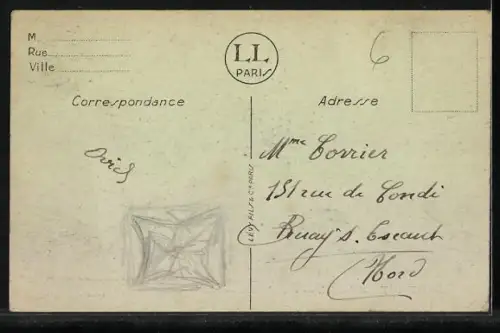 M
Rue
Ville
LL
PARIS
6
Correspondance
Adresse
LÉVY FILS & Cie PARIS
Mme Corrier
151 rue de Condé
Bruay s. Escaut
(Nord